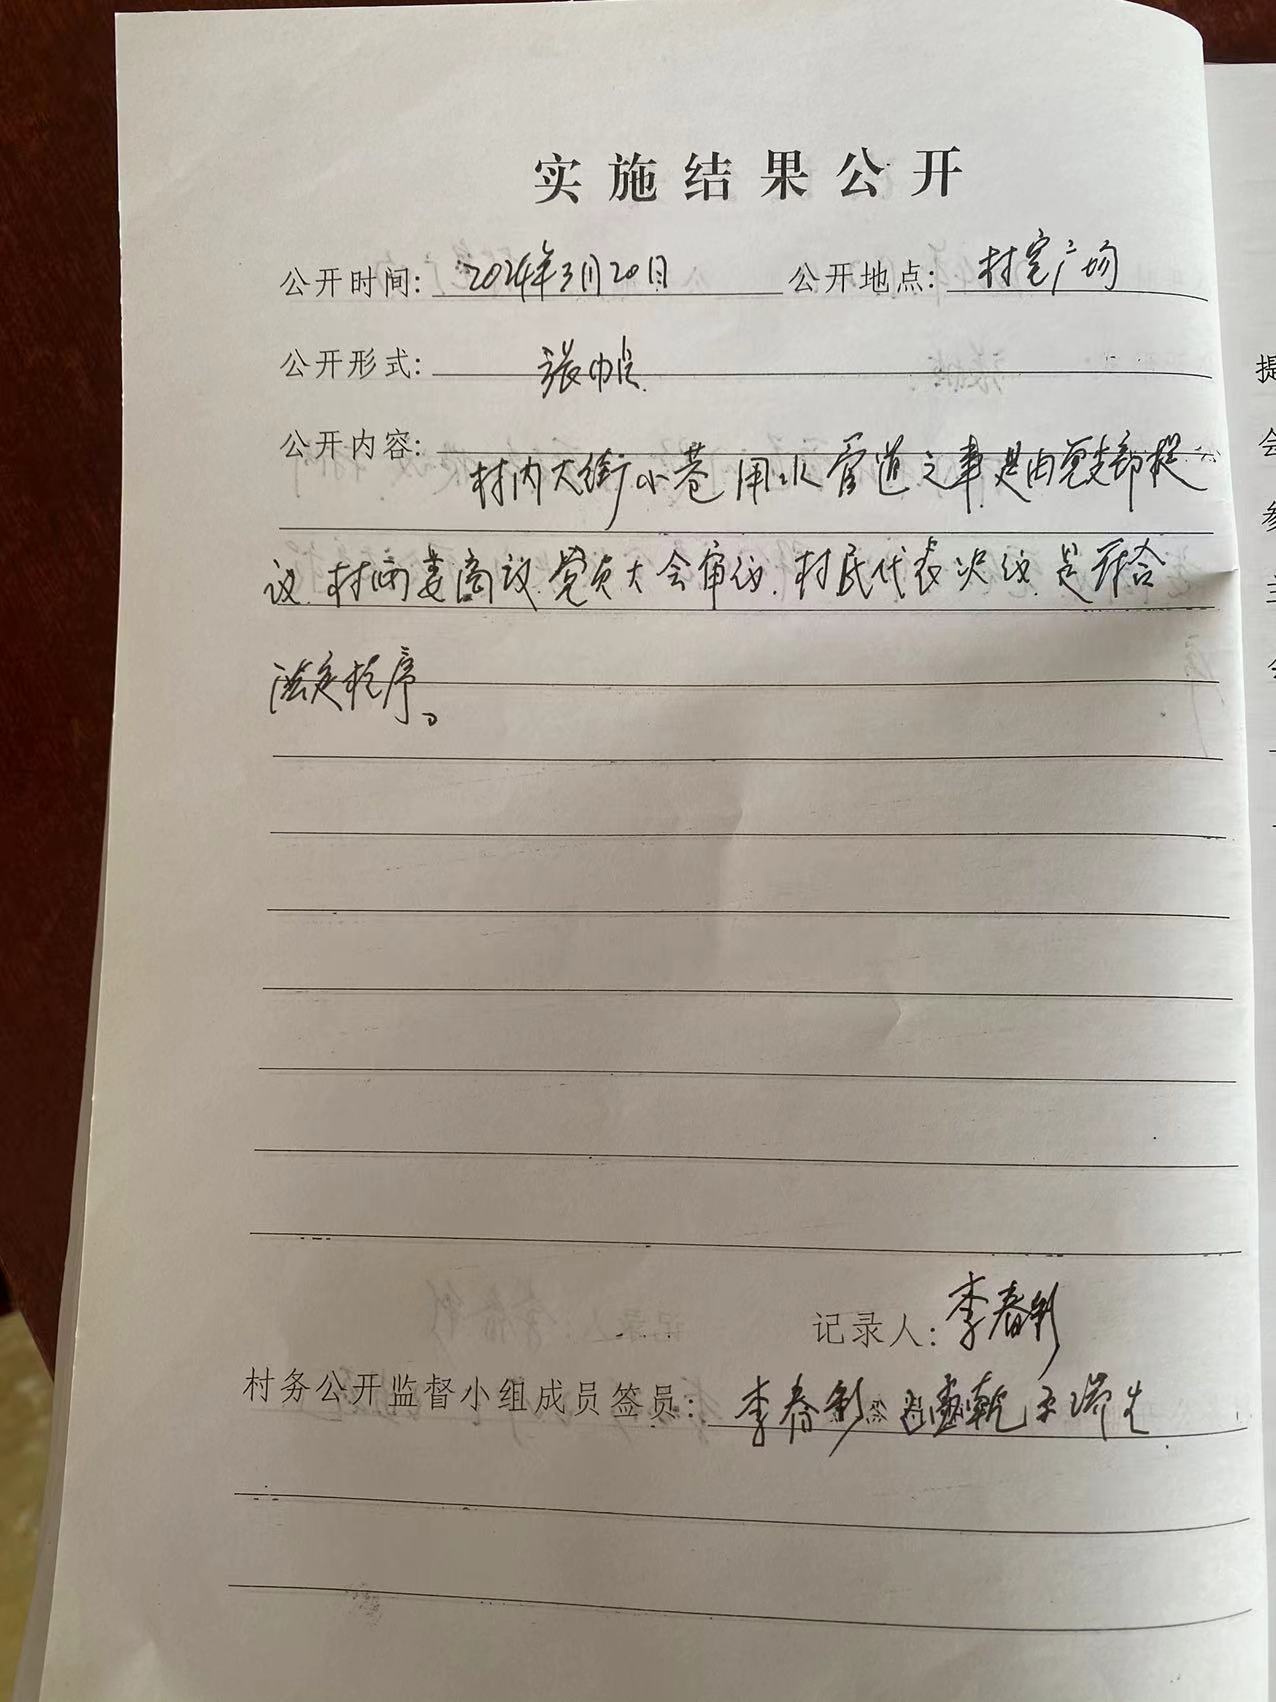 实施结果公开
公开时间: 2024年3月20日 公开地点: 村室广场
公开形式: 张
公开内容:
村内大街小巷用水管道之事是由党支部提
议.村两委商议.党员大会审议.村民代表决议.是符合
法定程序。
记录人: 李春彩
村务公开监督小组成员签员: 李春彩
提
会
参
主
会